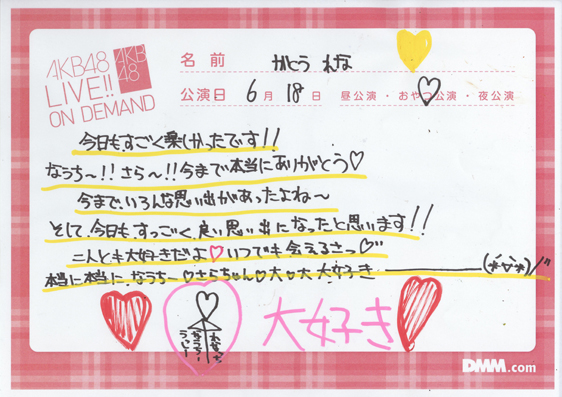 AKB48
LIVE!!
ON DEMAND
AKB
48
名前 かとう れな
公演日 6月 18日 昼公演・おやつ公演・夜公演
今日もすごく楽しかったです!!
なうち〜!!さら〜!!今まで本当にありがとう♡
今まで、いろんな思い出があったよね〜
そして、今日も、すっごく、良い思い出になったと思います!!
二人とも大好きだよ♡いつでも会えるさっ♡
本当に本当に、なうち〜♡さらちゃん♡大♡大 大好き
大好き
DMM.com